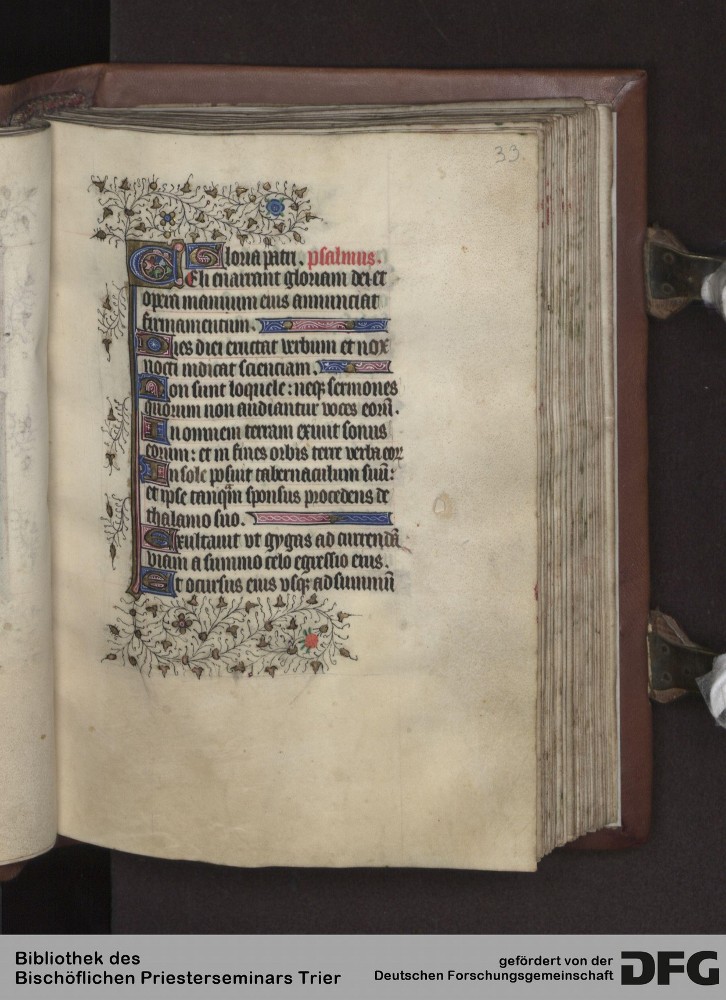 33.
Gloria patri. psalmus.
Celi enarrant gloriam dei et
opera manuum eius annunciat
firmamentum.
Dies diei eructat verbum et nox
nocti indicat scienciam.
Non sunt loquele: neqꝫ sermones
quorum non audiantur voces eoꝝ̃.
In omnem terram exiuit sonus
eorum: et in fines orbis terre verba eoꝝ
In sole posuit tabernaculum suũ:
et ipse tanqᷓm sponsus procedens de
thalamo suo.
Exultauit vt gygas ad currendã
viam a summo celo egressio eius.
Et ocursus eius vsqꝫ ad summũ
Bibliothek des
Bischöflichen Priesterseminars Trier
gefördert von der
Deutschen Forschungsgemeinschaft
DFG